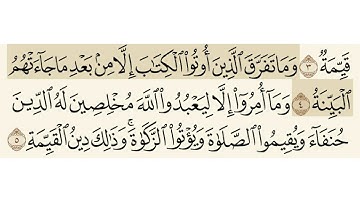 قَيِّمَةٞ ٣ وَمَا تَفَرَّقَ ٱلَّذِينَ أُوتُواْ ٱلۡكِتَٰبَ إِلَّا مِنۢ بَعۡدِ مَا جَآءَتۡهُمُ
ٱلۡبَيِّنَةُ ٤ وَمَآ أُمِرُوٓاْ إِلَّا لِيَعۡبُدُواْ ٱللَّهَ مُخۡلِصِينَ لَهُ ٱلدِّينَ
حُنَفَآءَ وَيُقِيمُواْ ٱلصَّلَوٰةَ وَيُؤۡتُواْ ٱلزَّكَوٰةَۚ وَذَٰلِكَ دِينُ ٱلۡقَيِّمَةِ ٥